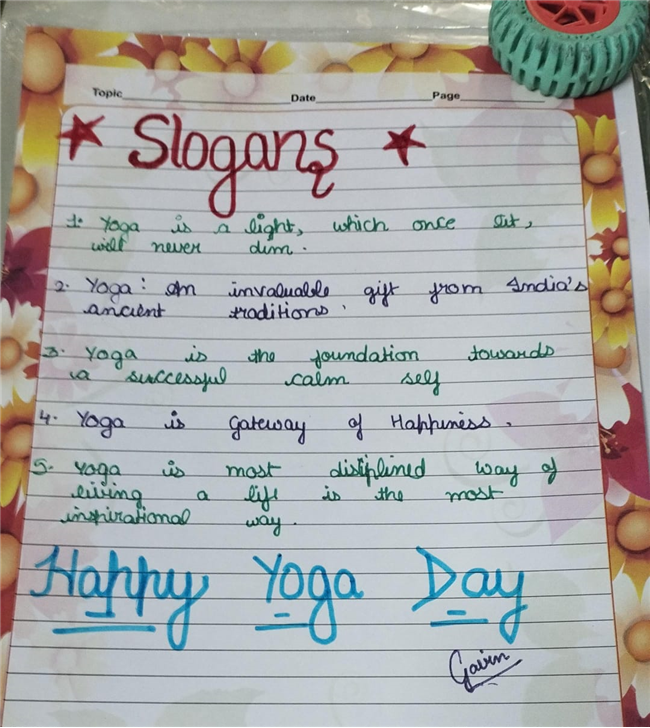 Topic Date Page
Slogans
1. Yoga is a light, which once lit,
will never dim.
2. Yoga: An invaluable gift from India's
ancient traditions.
3. Yoga is the foundation towards
a successful calm self
4. Yoga is Gateway of Happiness.
5. Yoga is most disiplined way of
living a life is the most
inspirational way.
Happy Yoga Day